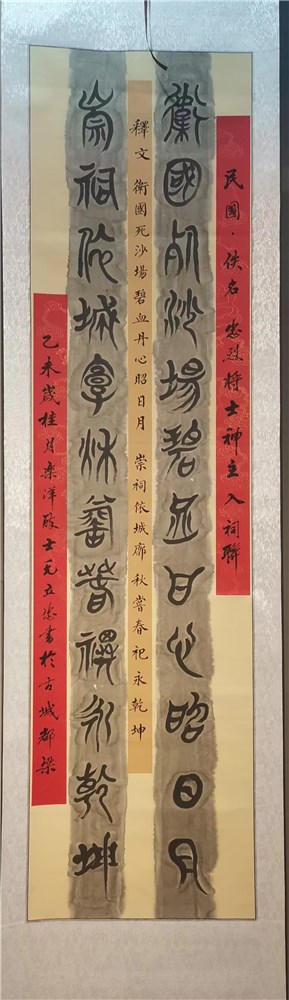 民國·佚名 忠烈将士神主入祠聯
衛國死沙場碧血丹心昭日月
釋文 衛國死沙場碧血丹心昭日月 崇祠依城廓 秋嘗春祀永乾坤
崇祠依城廓秋嘗春祀永乾坤
乙未歲桂月 洋 士元立 書於古城都梁